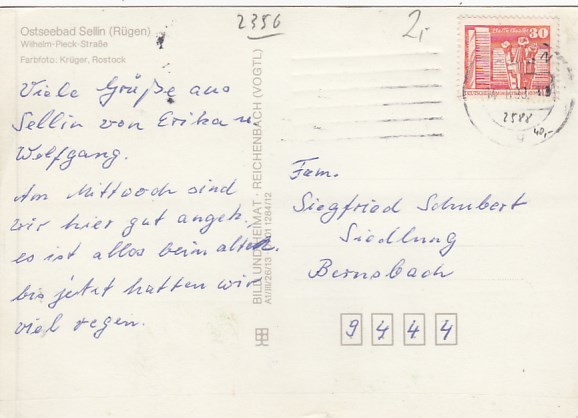 Ostseebad Sellin (Rügen)
Wilhelm-Pieck-Straße
Farbfoto: Krüger, Rostock
2356
2,-
30
2588
40,-
Viele Grüße aus
Sellin von Erika u
Wolfgang.
Am Mittwoch sind
wir hier gut angek.,
es ist alles beim alten.
bis jetzt hatten wir
viel regen.
BILD UND HEIMAT · REICHENBACH (VOGTL)
A1/III/26/13
Fam.
Siegfried Schubert
Siedlung
Bernsbach
9444